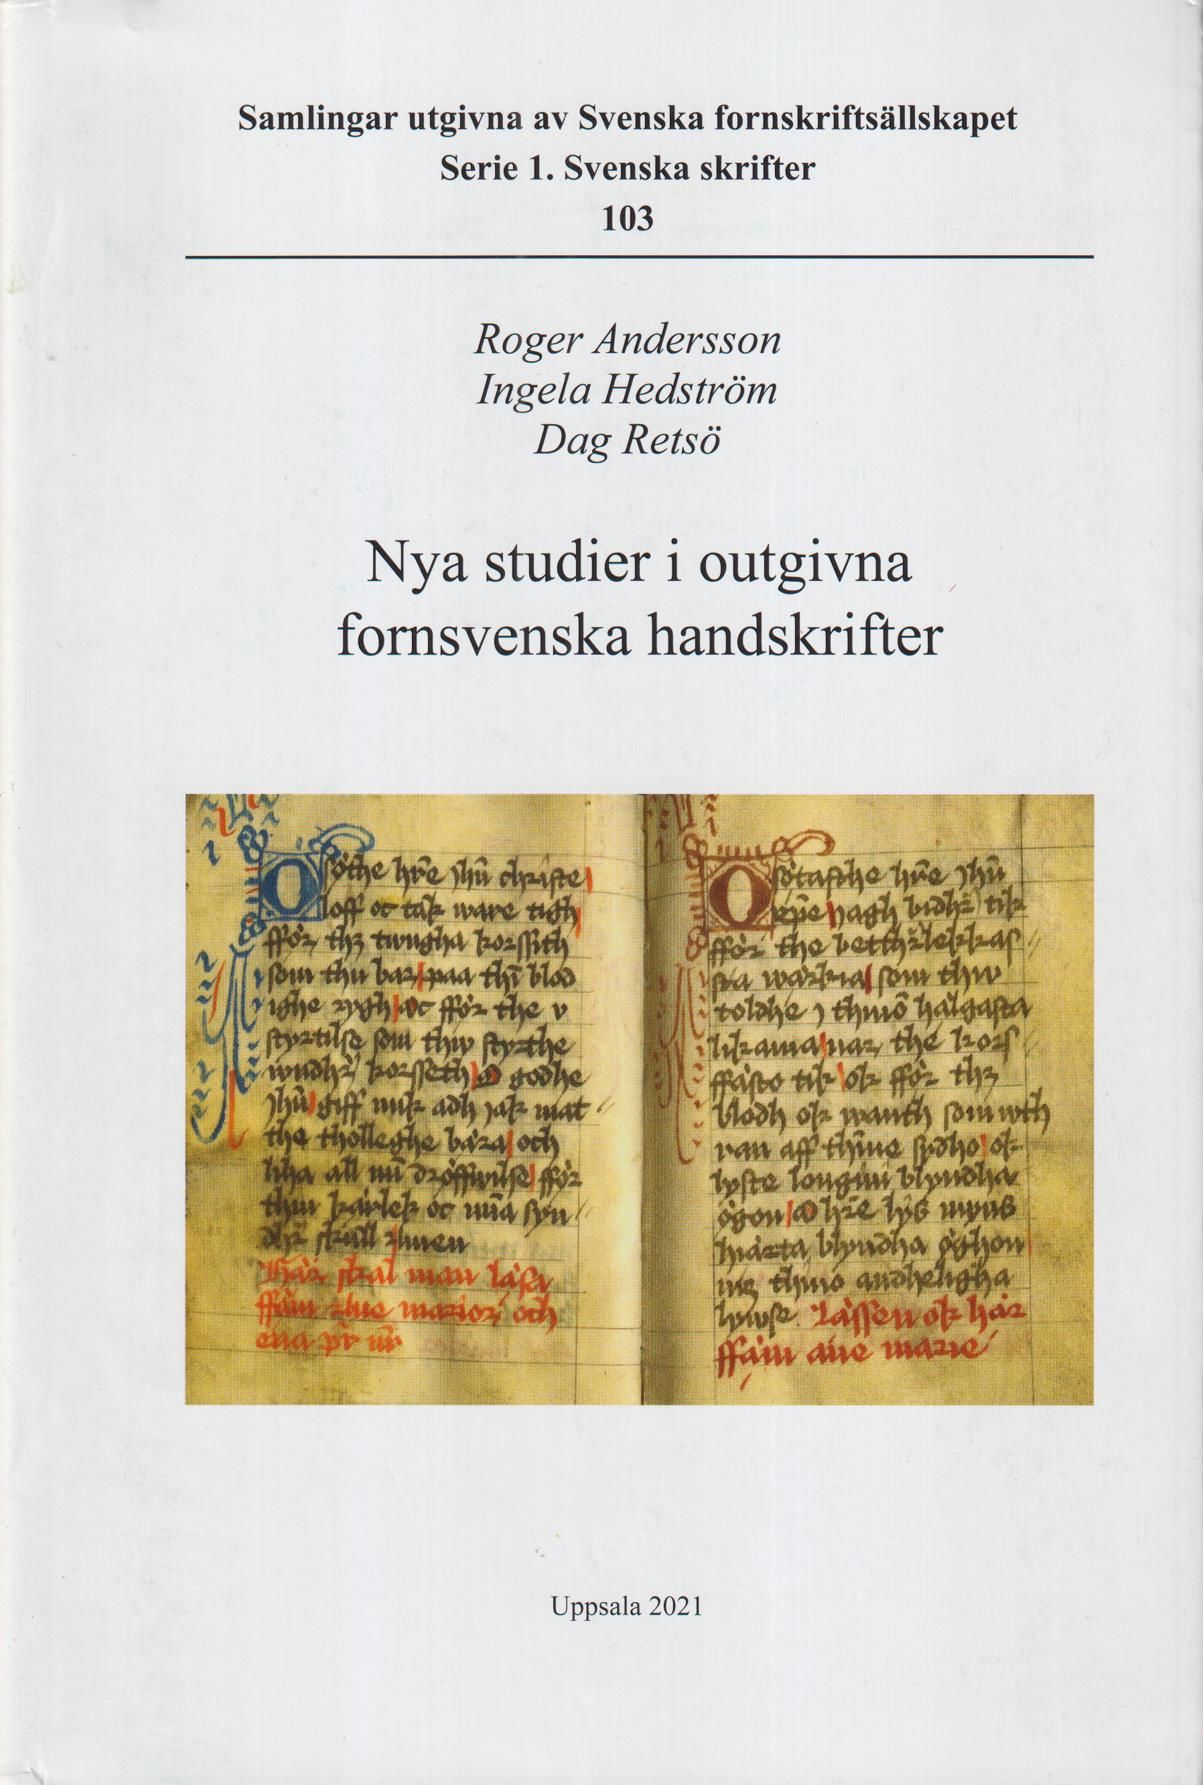 Samlingar utgivna av Svenska fornskriftsällskapet
Serie 1. Svenska skrifter
103
Roger Andersson
Ingela Hedström
Dag Retsö
Nya studier i outgivna
fornsvenska handskrifter
O søthe hr̄e jhū christe
loff oc tak ware tigh
ffør thz twngha korssith
som thu bar paa thī blod
ighe rygh oc ffør the v
styrtilse som thw styrthe
wndhr̄ korsseth O godhe
jhū giff mik adh jak mat
the tholleghe bära och
liha all mī drøffwilse ffør
thin kärlek oc mīa syn
dhr̄ skull Amen
Här skal man läsa
ffäm aue marior och
ena pr̄ nr̄
O søtasthe hr̄e jhū
xp̄e jagh bidhr̄ tik
ffør the
som thw
toldhe j thinō hälgasta
likama nar the kors
ffästo tik ok ffør thz
blodh ok wanth som wth
ran aff thīne sydho ok
lyste longini blyndha
øgon O hr̄e lys myns
hiärta blyndha øghon
mz thino andheligha
lywse Lässen ok här
ffäm aue marie
Uppsala 2021